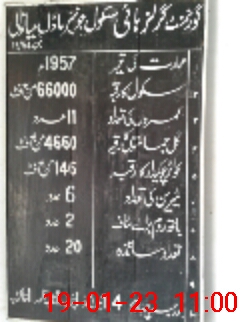 گورنمنٹ گرلز ہائی سکول جونیئر ماڈل
عمارت کی تعمیر 1957ء
سکول کا رقبہ 66000 مربع فٹ
کمروں کی تعداد 11 عدد
4660 مربع فٹ
کوارٹر چوکیدار کا رقبہ 146 مربع فٹ
لیٹرین کی تعداد 6 عدد
باتھ روم برائے سٹاف 2 عدد
تعداد اساتذہ 20 عدد
19-01-23 11:00